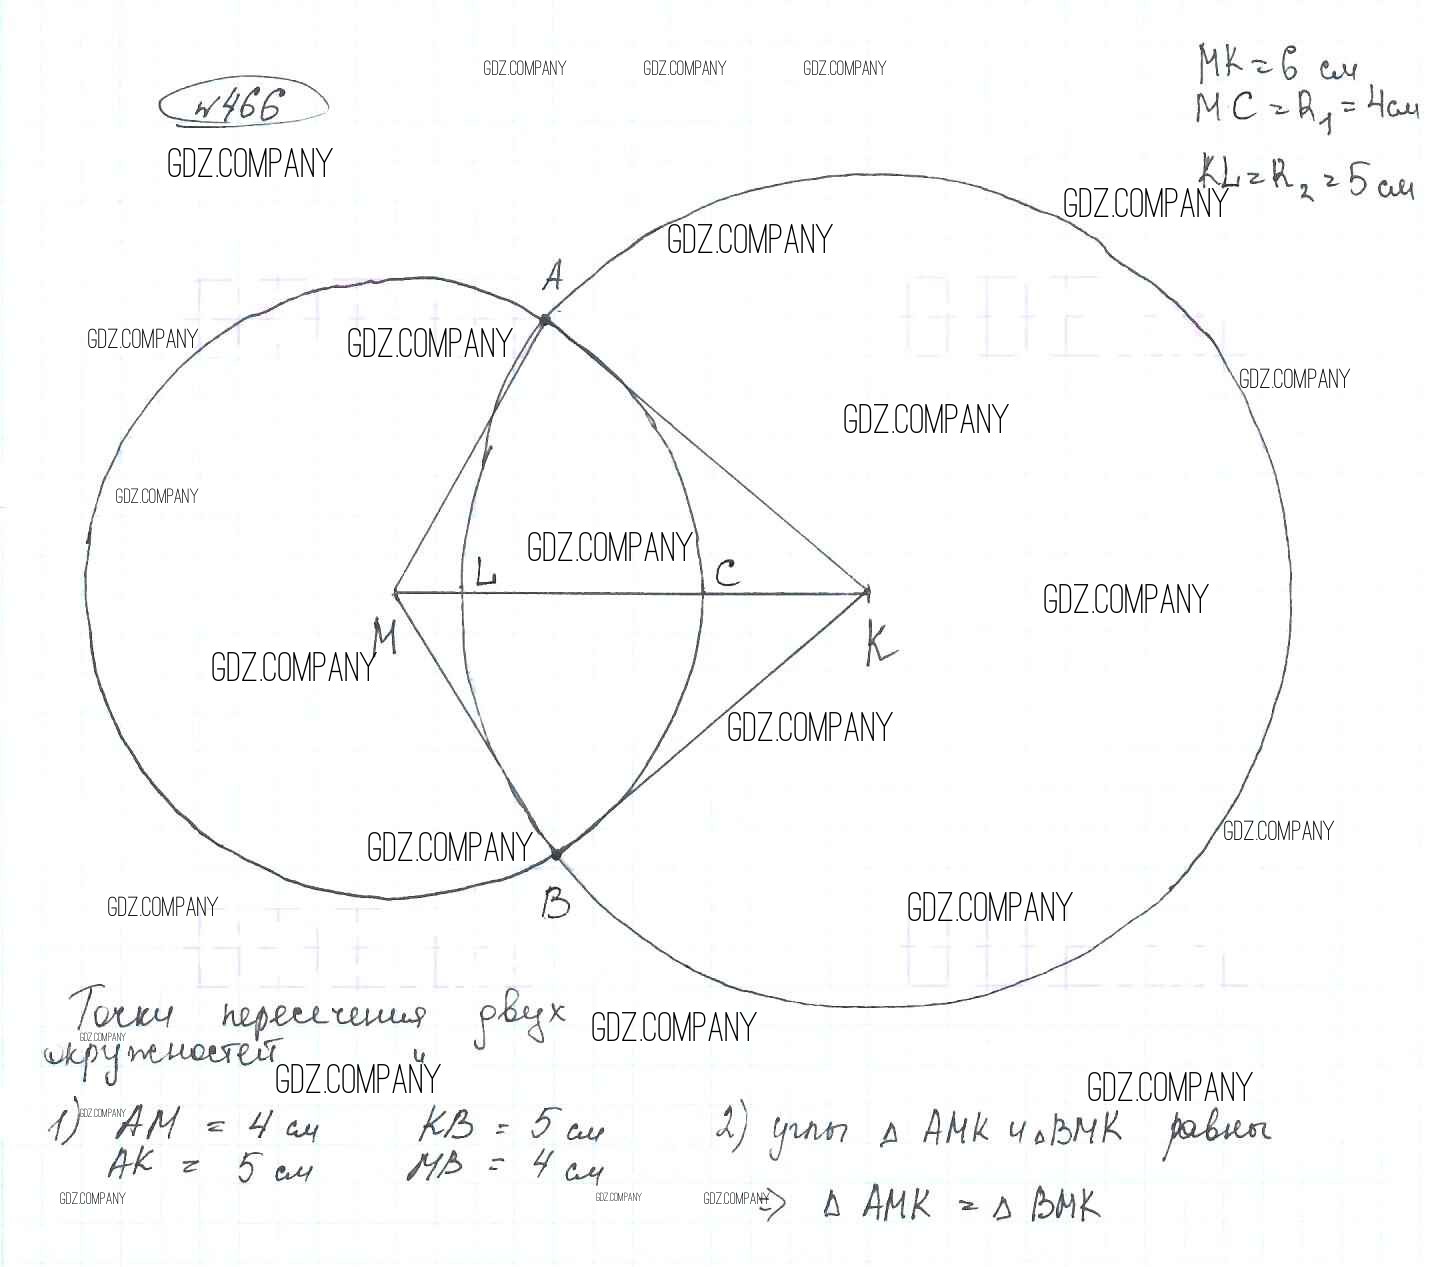 №466
GDZ.COMPANY
GDZ.COMPANY GDZ.COMPANY GDZ.COMPANY
MK = 6 см
MC = R₁ = 4см
KL = R₂ = 5 см
GDZ.COMPANY
GDZ.COMPANY
A
GDZ.COMPANY
GDZ.COMPANY
GDZ.COMPANY
GDZ.COMPANY
GDZ.COMPANY
GDZ.COMPANY
L
C
M
K
GDZ.COMPANY
GDZ.COMPANY
GDZ.COMPANY
GDZ.COMPANY
GDZ.COMPANY
B
GDZ.COMPANY
GDZ.COMPANY
GDZ.COMPANY
Точки пересечения двух
GDZ.COMPANY
GDZ.COMPANY
окружностей
GDZ.COMPANY
GDZ.COMPANY
GDZ.COMPANY
1) AM = 4 см KB = 5 см
AK = 5 см MB = 4 см
2) углы Δ AMK и Δ BMK равны
GDZ.COMPANY GDZ.COMPANY GDZ.COMPANY
=> Δ AMK = Δ BMK